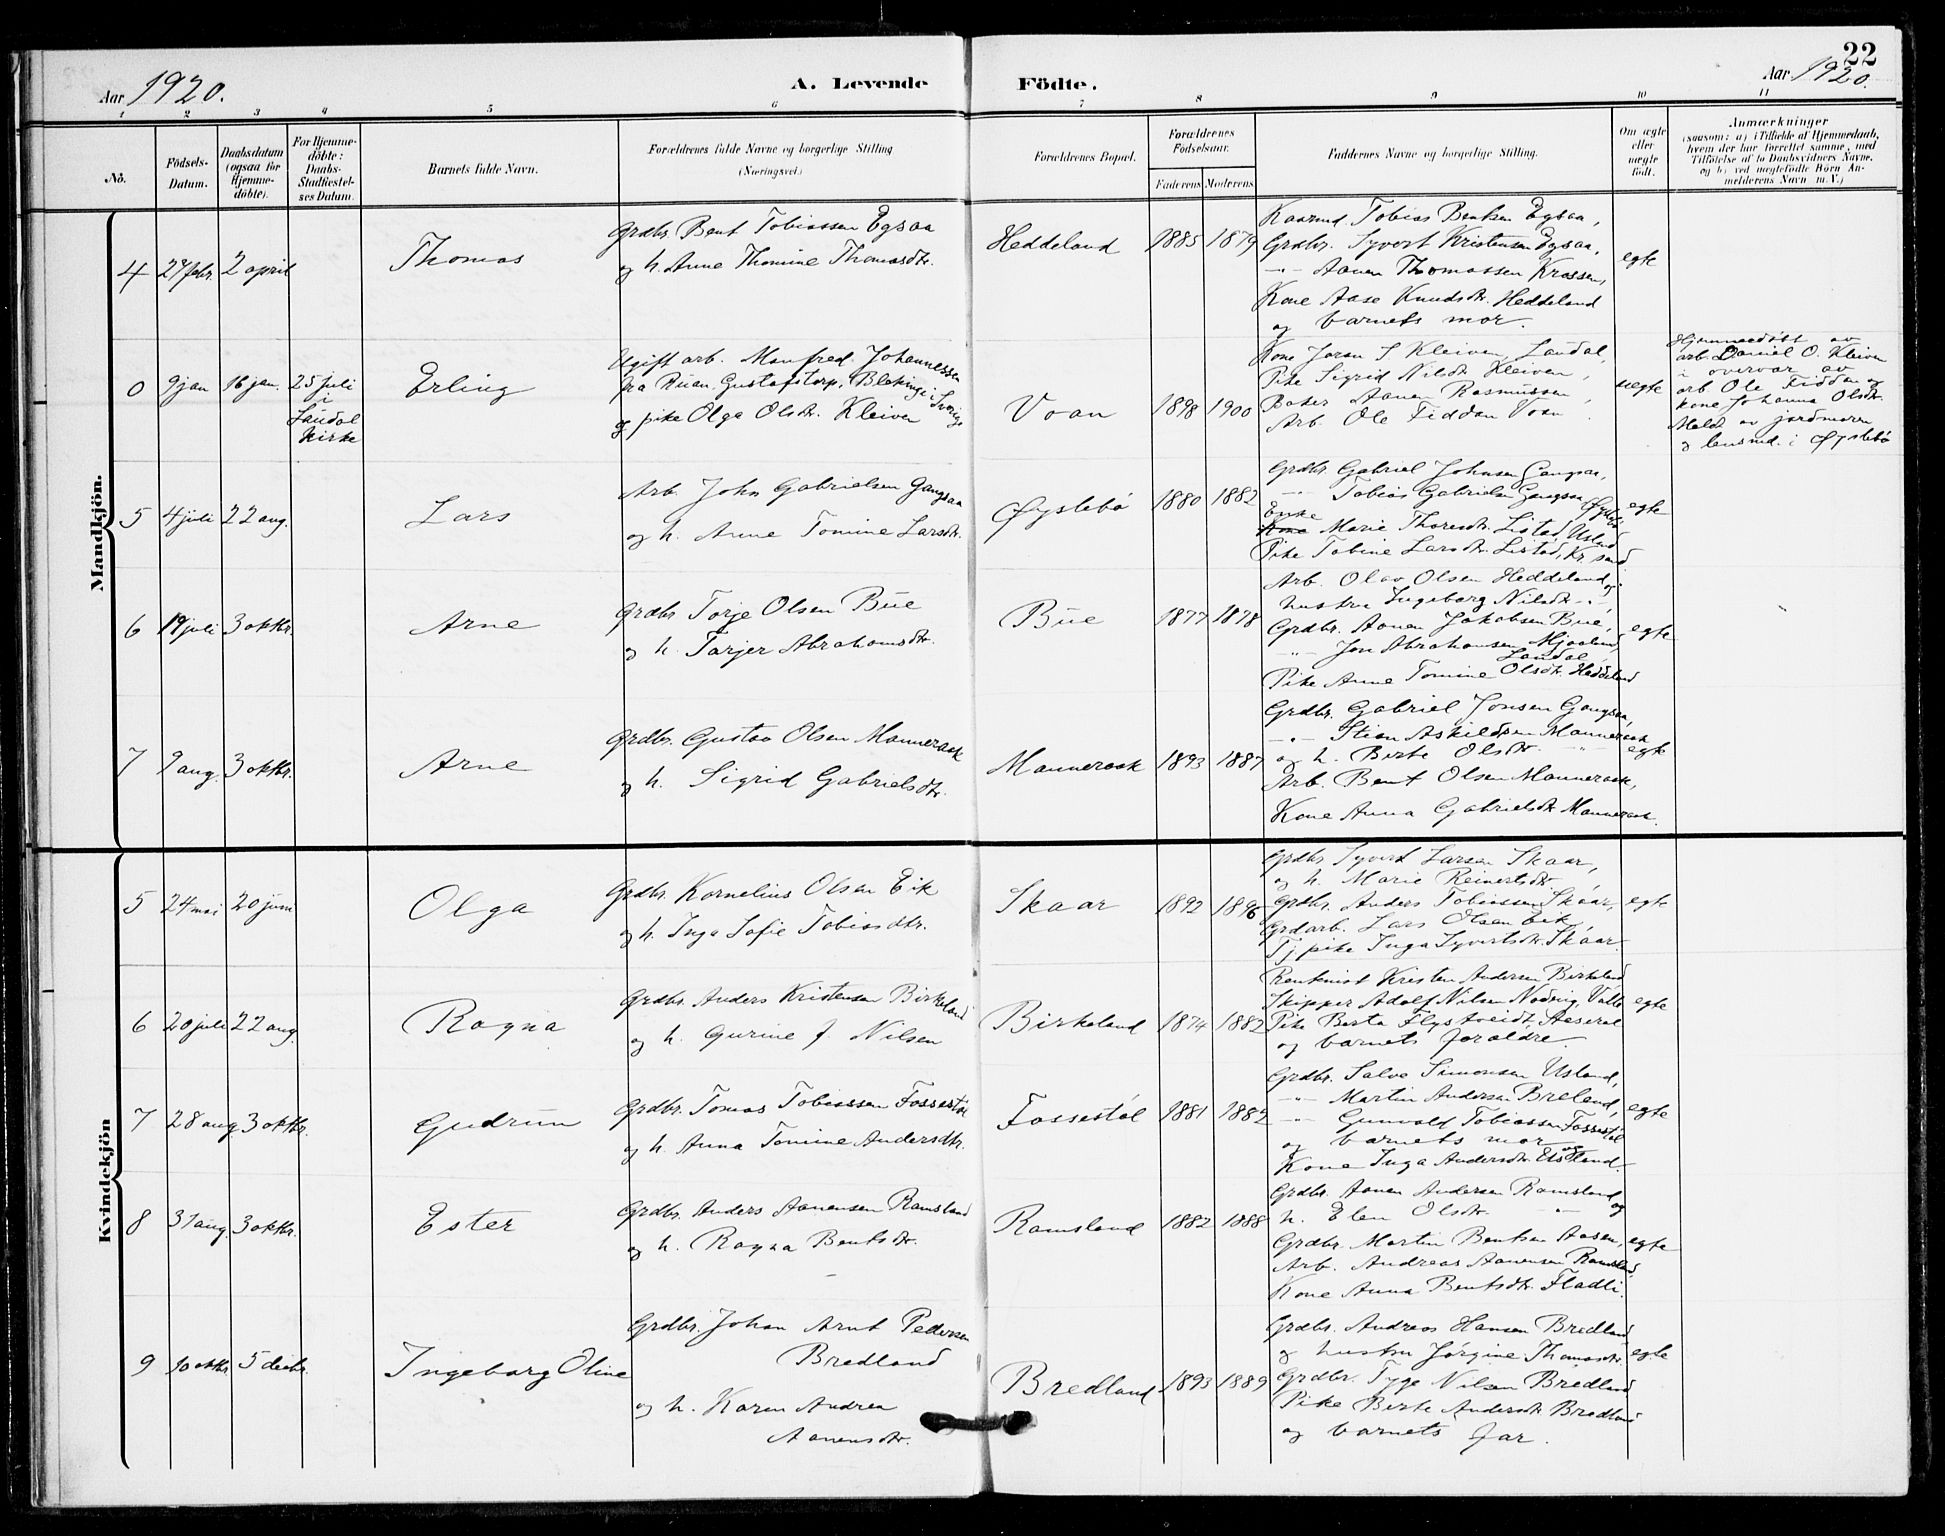 22
Aar 1920. A. Levende Födte. Aar 1920.
1 2 3 4 5 6 7 8 9 10 11
No.
Födsels-Datum.
Daabsdatum (ogsaa for Hjemme-döbte).
For Hjemme-döbte: Daabs-Stadfæstel-ses Datum.
Barnets fulde Navn.
Forældrenes fulde Navne og borgerlige Stilling (Næringsvei.)
Forældrenes Bopæl.
Forældrenes Födselsaar.
Faderens Moderens
Faddernes Navne og borgerlige Stilling.
Om ægte eller uægte födt.
Anmærkninger
(saasom: a) i Tilfælde af Hjemmedaab,
hvem der har forrettet samme, med
Tilföielse af to Daabsvidners Navne,
og b) ved uægtefödte Börn An-
melderens Navn m. V.)
Mandkjön.
4 27 febr. 2 april
Thomas
Grdbr. Bent Tobiassen Egsaa
og h. Anne Thomine Thomasdtr.
Heddeland 1885 1879
Tobias Bentsen Egsaa,
Grdbr. Syvert Kristensen Egsaa,
-"- Aanen Thomassen Krossen,
Kone Aase Knudsdtr. Heddeland
og barnets mor.
egte
0 9 jan 16 jan. 25 juli
i
Laudal
Kirke
Erling
Ugift arb. Manfred Johannessen
fra Ruan, Gustafstorp, Bleking i Sverige
og pike Olga Olsdtr. Kleiven
Voan 1898 1900
Kone Joran S Kleiven, Laudal,
Pike Sigrid Nilsdtr Kleiven,
Aanen Rasmussen,
Arb. Ole Fiddan Voan
uegte
Hjemmedøbt av
arb. Daniel O. Kleiven
i overvær av
arb Ole Fiddan og
kone Johanna Olsdtr.
Meldt av jordmoren
og lensmd. i Øyslebø
5 4 juli 22 aug.
Lars
Arb. John Gabrielsen Gangsaa
og h. Anne Tomine Larsdtr.
Øyslebø 1880 1882
Grdbr. Gabriel Johnsen Gangsaa,
-"- Tobias Gabrielsen Gangsaa, Øyslebø
Enke
Kone Marie Thoresdtr. Listad, Usland
Pike Tobine Larsdtr. Listad, Kr.sand
egte
6 19 juli 3 oktbr.
Arne
Grdbr. Torje Olsen Bue
og h. Tarjer Abrahamsdtr.
Bue 1877 1878
Arb. Olav Olsen Heddeland og
hustru Ingeborg Nilsdtr. -"-,
Grdbr. Aanen Jakobsen Bue,
-"- Jon Abrahamsen Mjaaland,
Laudal,
Pike Anne Tomine Olsdtr. Heddeland
egte
7 9 aug. 3 oktbr.
Arne
Grdbr. Gustav Olsen Manneraak
og h. Sigrid Gabrielsdtr.
Manneraak 1893 1887
Grdbr. Gabriel Jonsen Gangsaa,
-"- Stian Askildsen Manneraak
og h. Birte Olsdtr -"-
Arb. Bent Olsen Manneraak,
Kone Anna Gabrielsdtr Manneraak.
egte
Kvindekjön
5 24 mai 20 juni
Olga
Grdbr. Kornelius Olsen Eik
og h. Inga Sofie Tobiasdtr.
Skaar 1892 1896
Grdbr Syvert Larsen Skaar,
og h. Marie Reinertsdtr. ,
Grdbr. Anders Tobiassen Skaar,
Grdarb. Lars Olsen Eik,
Tj pike Inga Syvertsdtr. Skaar.
egte
6 20 juli 22 aug.
Ragna
Grdbr. Anders Kristensen Birkeland
og h. Gurine f. Nilsen
Birkeland 1874 1882
Kristen Andersen Birkeland,
Skipper Adolf Nilsen Nodvig, Valle
Pike Berta Flystveidt, Aaseral
og barnets foraldre.
egte
7 28 aug. 3 oktbr.
Gudrun
Grdbr. Tomas Tobiassen Fossestøl
og h. Anna Tomine Andersdtr.
Fossestøl 1881 1882
Grdbr. Salve Simonsen Usland,
-"- Martin Andersen Breland,
-"- Gunvald Tobiassen Fossestøl
og barnets mor og
Kone Inga Andersdtr.
egte
8 31 aug. 3 oktbr.
Ester
Grdbr. Anders Aanensen Ramsland
og h. Ragna Bentsdtr.
Ramsland 1882 1888
Grdbr. Aanen Andersen Ramsland og
h. Elen Olsdtr. -"-
Grdbr. Martin Bentsen Aasen,
Arb. Andreas Aanensen Ramsland,
Kone Anna Bentsdtr. Fladli.
egte
9 10 oktbr. 5 decbr.
Ingeborg Oline
Grdbr. Johan Arnt Pedersen
Bredland
og h. Karen Andrea
Aanensdtr.
Bredland 1893 1889
Grdbr. Andreas Hansen Bredland
og hustru Jørgine Thomasdtr.
Grdbr. Tyge Nilsen Bredland
Pike Birte Andersdtr Bredland
og barnets far.
egte